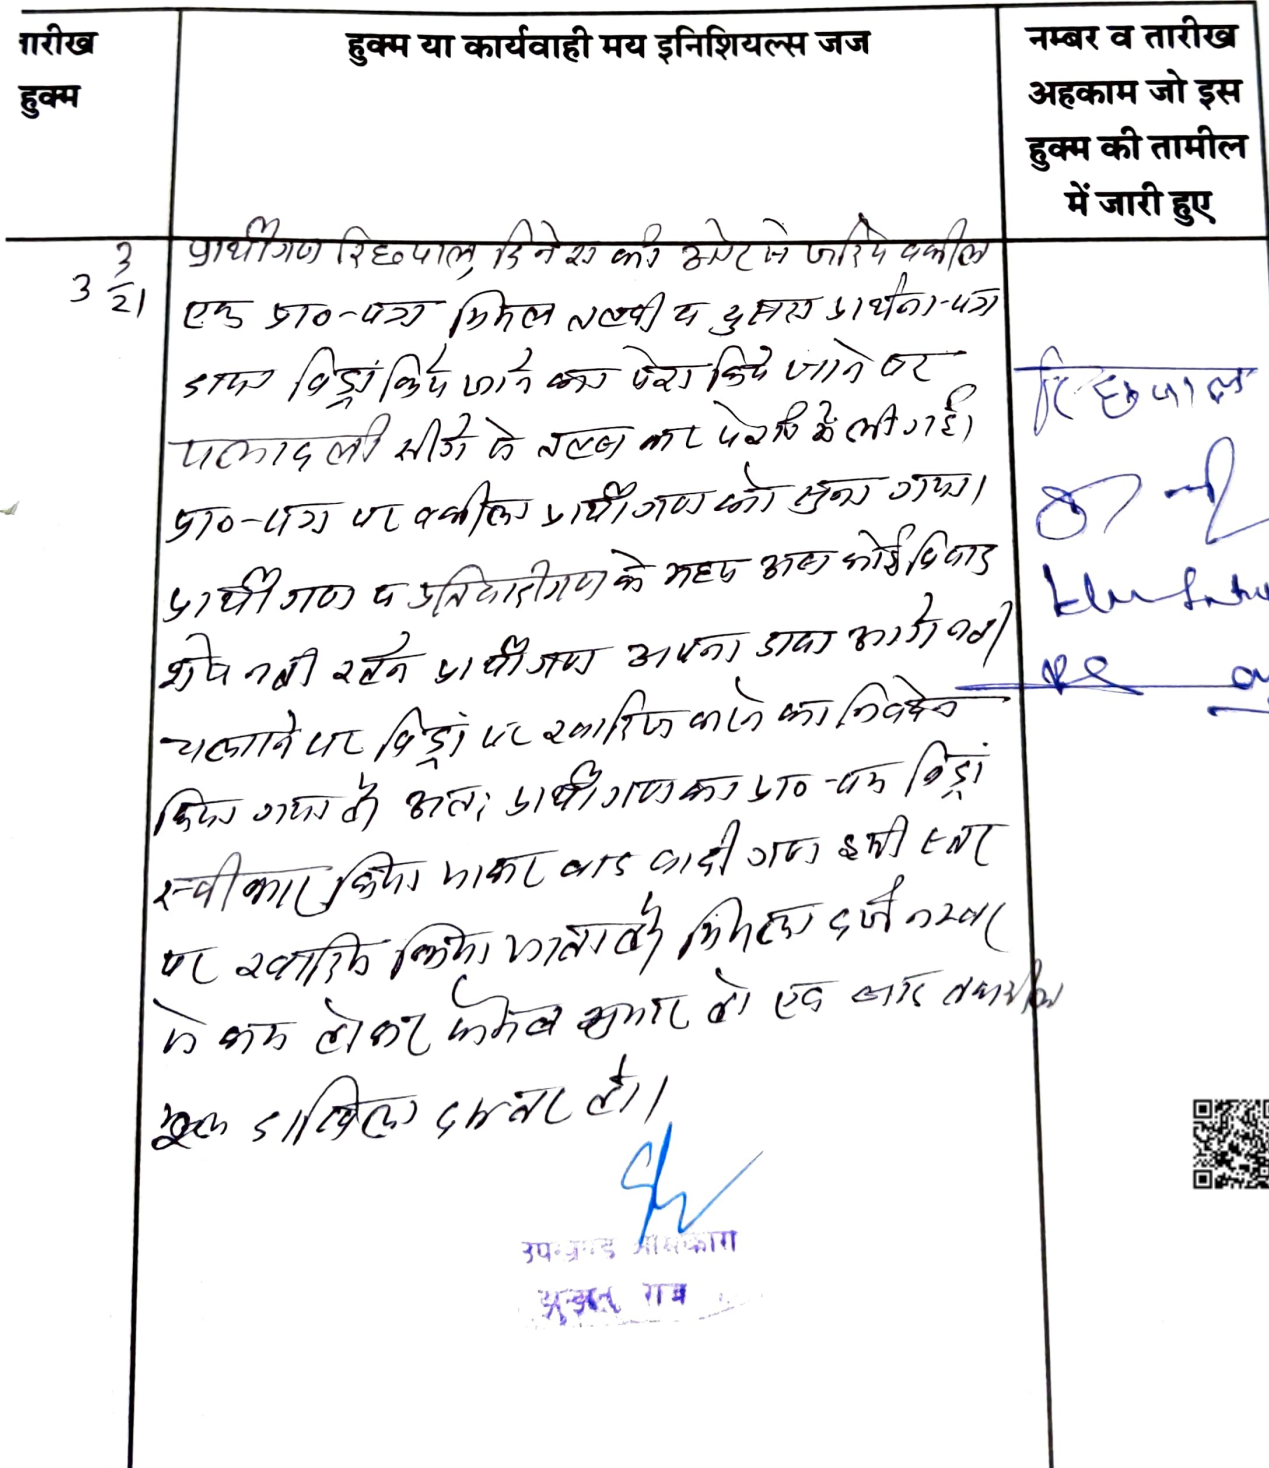 तारीख
हुक्म
हुक्म या कार्यवाही मय इनिशियल्स जज
नम्बर व तारीख
अहकाम जो इस
हुक्म की तामील
में जारी हुए
3/3/21
प्रार्थीगण रिछपाल, दिनेश की ओर से जरिये वकील
एक प्रा०-पत्र मिसल तलबी व दुसरा प्रार्थना-पत्र
दावा विड्रां किये जाने का पेश किये जाने पर
पत्रावली सीगे से तलब कर पेशी में ली गई।
प्रा०-पत्र पर वकील प्रार्थीगण को सुना गया।
प्रार्थीगण व प्रतिवादीगण के मध्य अब कोई विवाद
शेष नही रहने प्रार्थीगण अपना दावा आगे नही
चलाने पर विड्रां पर खारिज करने का निवेदन
किया गया है अतः प्रार्थीगण का प्रा०-पत्र विड्रां
स्वीकार किया जाकर वाद वादी गण इसी स्तर
पर खारिज किया जाता है मिसल दर्ज नम्बर
से कम होकर फैसल शुमार हो एवं बाद तकमील
दाखिल दफ्तर हो।
रिछपाल
उपखण्ड अधिकारी
झुन्झुनू राज